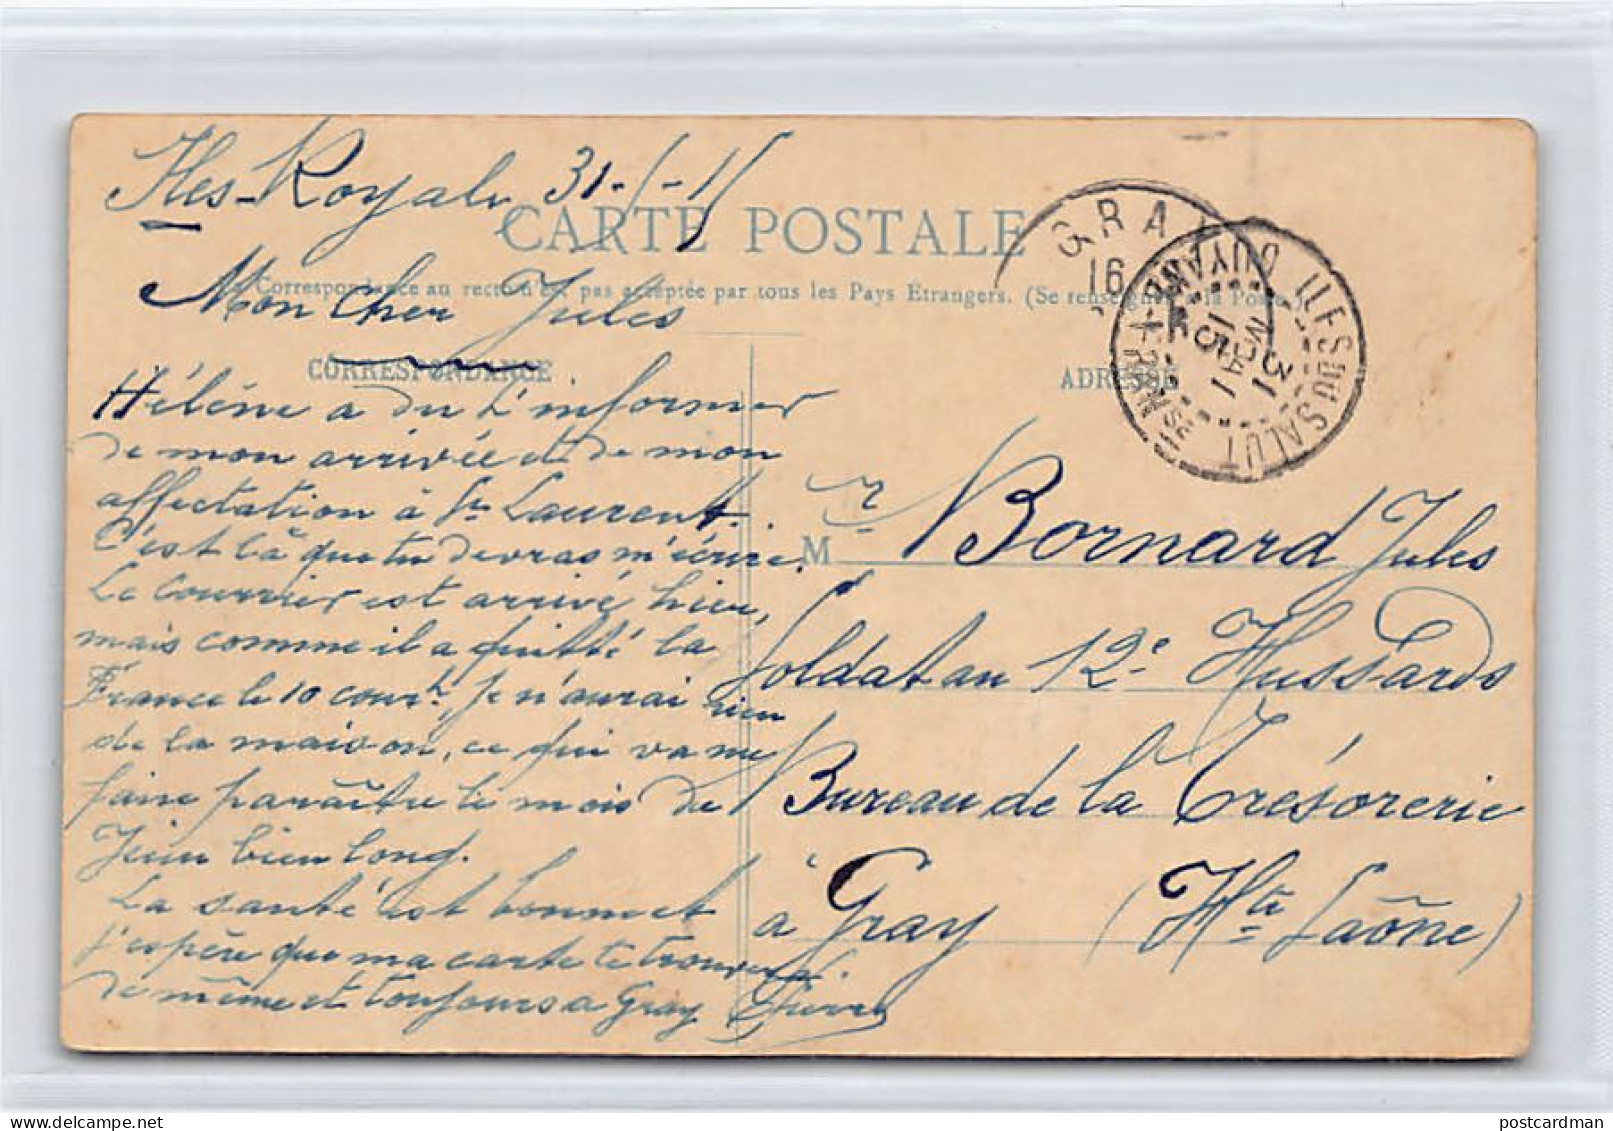 Iles-Royale 31-5-15
CARTE POSTALE
Correspondance au recto n'est pas acceptée par tous les Pays Etrangers. (Se renseigner à la Poste.)
Mon cher Jules
CORRESPONDANCE
Hélène a du t'informer
de mon arrivée et de mon
affectation à St Laurent.
C'est là que tu devras m'écrire.
Le courrier est arrivé hier,
mais comme il a quitté la
France le 10 court, je n'aurai rien
de la maison, ce qui va me
faire paraître le mois de
Juin bien long.
La santé est bonne et
j'espère que ma carte te trouvera
de même et toujours a Gray
Pierre
GRAY
16
ILES DU SALUT
GUYANE FRANSE
31
MAI
15
ADRESSE
M r Bornard Jules
Soldat au 12e Hussards
Bureau de la Trésorerie
à Gray (Hte Saône)
postcardman